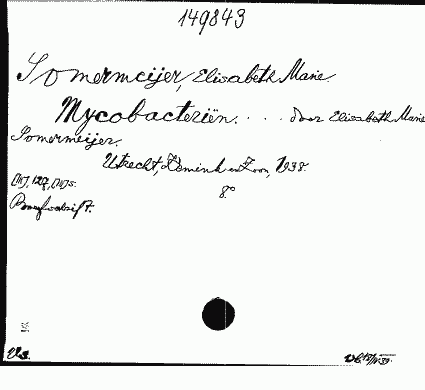 149843
Somermeijer, Elisabeth Marie.
Mycobacteriën. . . . door Elisabeth Marie
Somermeijer.
Utrecht, Kemink en Zoon, 1938.
8°
Proefschrift.